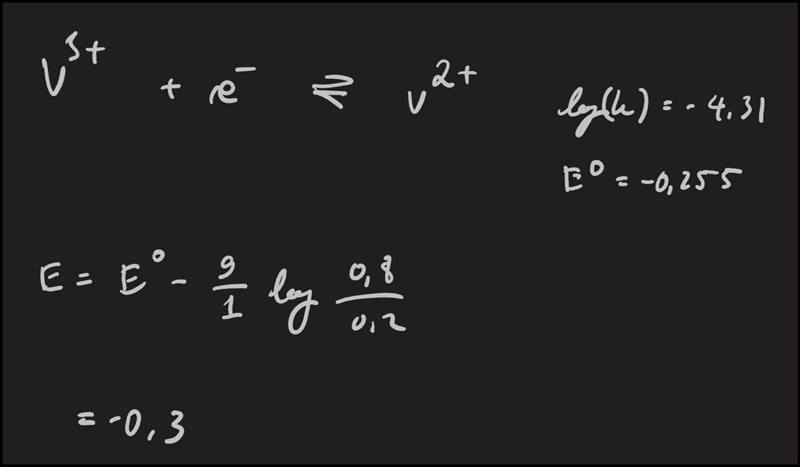 V³⁺ + e⁻ ⇌ V²⁺
log(k) = -4,31
E⁰ = -0,255
E = E⁰ - 9/1 log 0,8/0,2
= -0,3